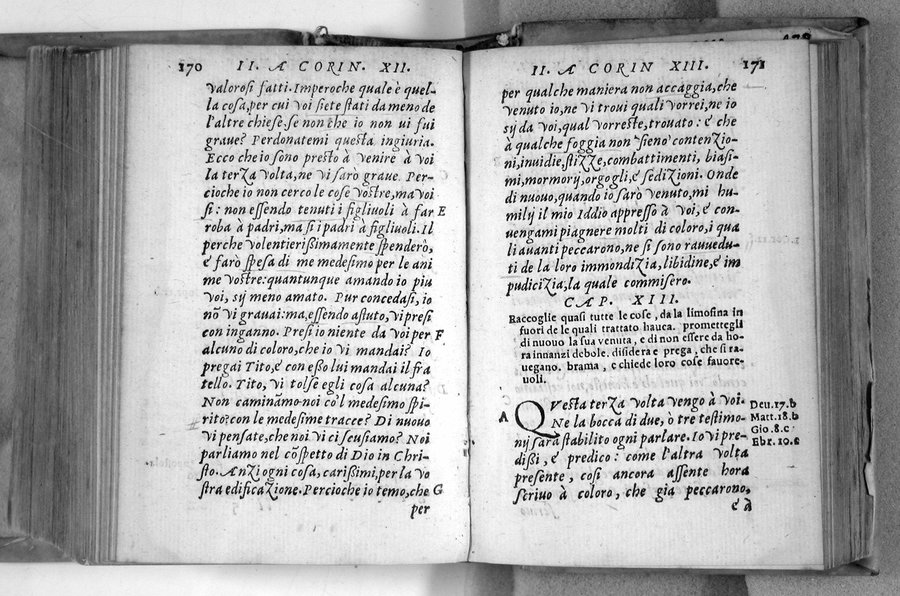 170 II. A CORIN. XII.
valorosi fatti. Imperoche quale è quel-
la cosa, per cui voi siete stati da meno de
l'altre chiese, se non che io non ui fui
graue? Perdonatemi questa ingiuria.
Ecco che io sono presto à venire à voi
la terza volta, ne vi sarò graue. Per-
cioche io non cerco le cose vostre, ma voi
si: non essendo tenuti i figliuoli à far E
roba à padri, ma si i padri à figliuoli. Il
perche volentierißimamente spenderò,
e farò spesa di me medesimo per le ani
me vostre: quantunque amando io piu
voi, sij meno amato. Pur concedasi, io
nō vi grauai: ma, essendo astuto, vi presi
con inganno. Presi io niente da voi per F
alcuno di coloro, che io vi mandai? Io
pregai Tito, e con eßo lui mandai il fra
tello. Tito, vi tolse egli cosa alcuna?
Non caminãmo noi co'l medesimo spi-
rito? con le medesime tracce? Di nuouo
vi pensate, che noi vi ci scusiamo? Noi
parliamo nel cōspetto di Dio in Chri-
sto. Anzi ogni cosa, carißimi, per la vo
stra edificazione. Percioche io temo, che G
per
II. A CORIN XIII. 171
per qualche maniera non accaggia, che
venuto io, ne vi troui quali vorrei, ne io
sij da voi, qual vorreste, trouato: e che
à qualche foggia non sieno contenzio-
ni, inuidie, stizze, combattimenti, biasi-
mi, mormorij, orgogli, e sedizioni. Onde
di nuouo, quando io sarò venuto, mi hu-
milij il mio Iddio appresso à voi, e con-
uengami piagnere molti di coloro, i qua
li auanti peccarono, ne si sono rauuedu-
ti de la loro immondizia, libidine, e im
pudicizia, la quale commisero.
CAP. XIII.
Raccoglie quasi tutte le cose, da la limosina in
fuori de le quali trattato haueа. promettegli
di nuouo la sua venuta, e di non essere da ho-
ra innanzi debole. disidera e prega, che si ra-
uegano. brama, e chiede loro cose fauore-
uoli.
A QVesta terza volta vengo à voi. Deu.17.b
Ne la bocca di due, ò tre testimo- Matt.18.b
nij sara stabilito ogni parlare. Io vi pre- Gio.8.c
dißi, e predico: come l'altra volta Ebr.10.e
presente, cosi ancora assente hora
scriuo à coloro, che gia peccarono,
e à